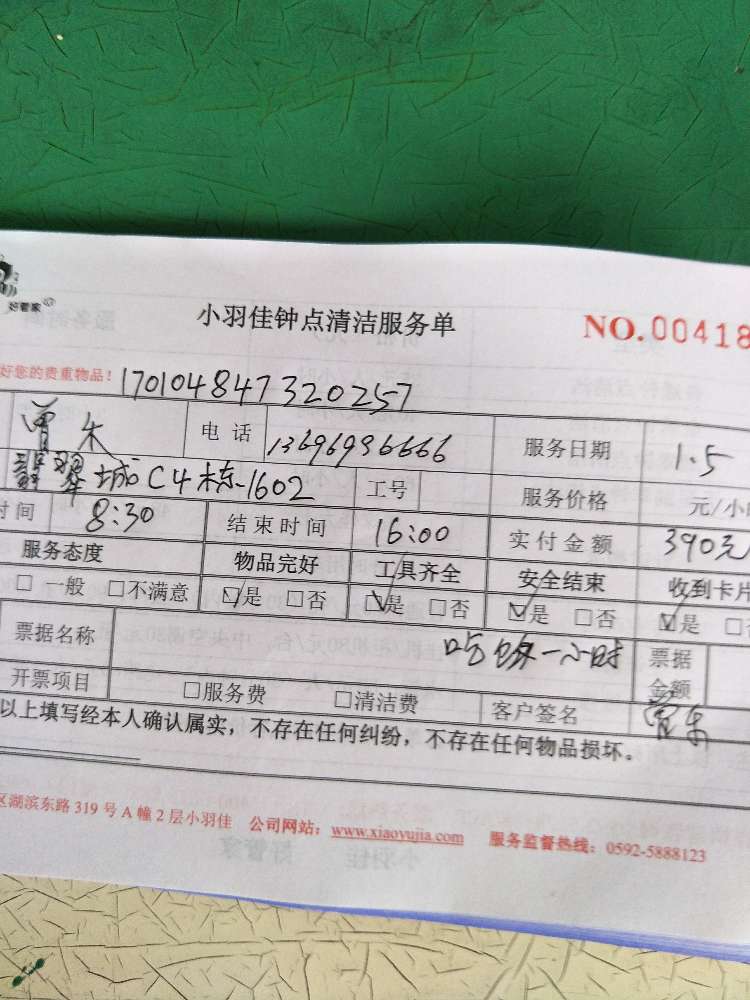 好管家
小羽佳钟点清洁服务单 NO.00418
好您的贵重物品! 170104847320257
电话 13696996666 服务日期 1.5
翡翠城C4栋-1602 工号 服务价格 元/小
时间 8:30 结束时间 16:00 实付金额 390元
服务态度 物品完好 工具齐全 安全结束 收到卡片
□一般 □不满意 ☑是 □否 ☑是 □否 ☑是 □否 ☑是 □
票据名称 吃饭一小时 票据金额
开票项目 □服务费 □清洁费 客户签名
以上填写经本人确认属实，不存在任何纠纷，不存在任何物品损坏。
区湖滨东路319号A幢2层小羽佳 公司网站：www.xiaoyujia.com 服务监督热线：0592-5888123